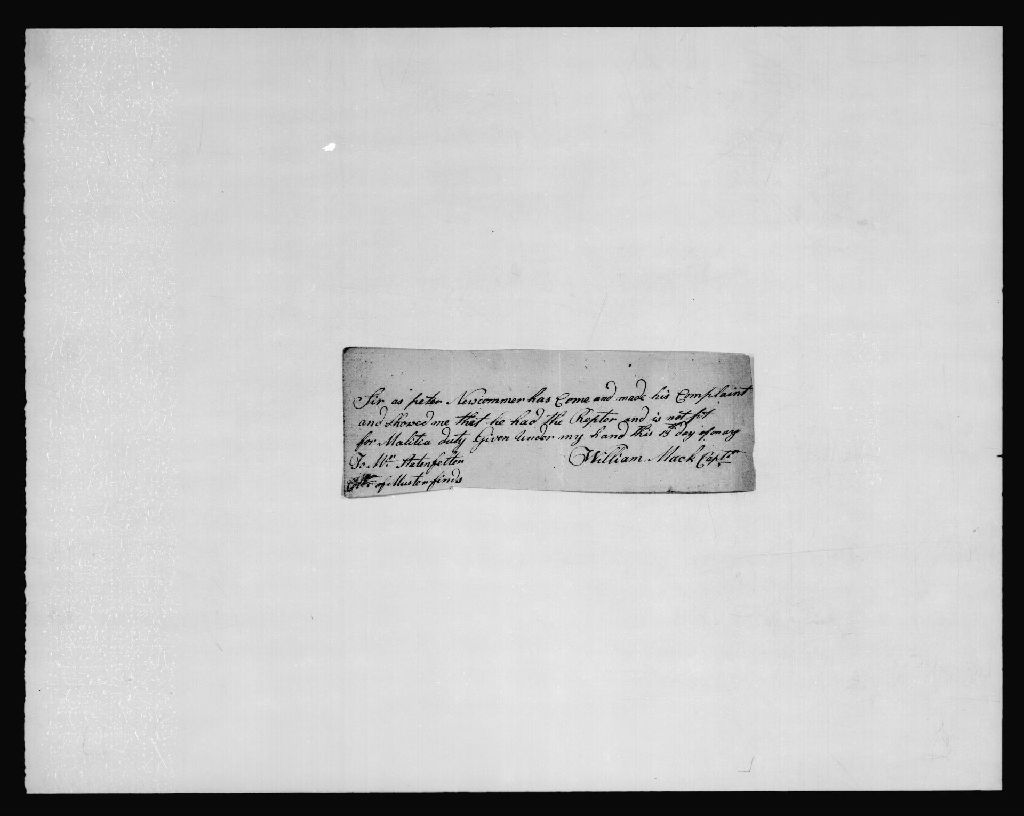 Sir as peter Newcommer has Come and made his Complaint
and Showed me that he had the Ruptor and is not fit
for Malitia duty Given under my hand this day of may
To Mr.
of Muster fines
William Mack Captn